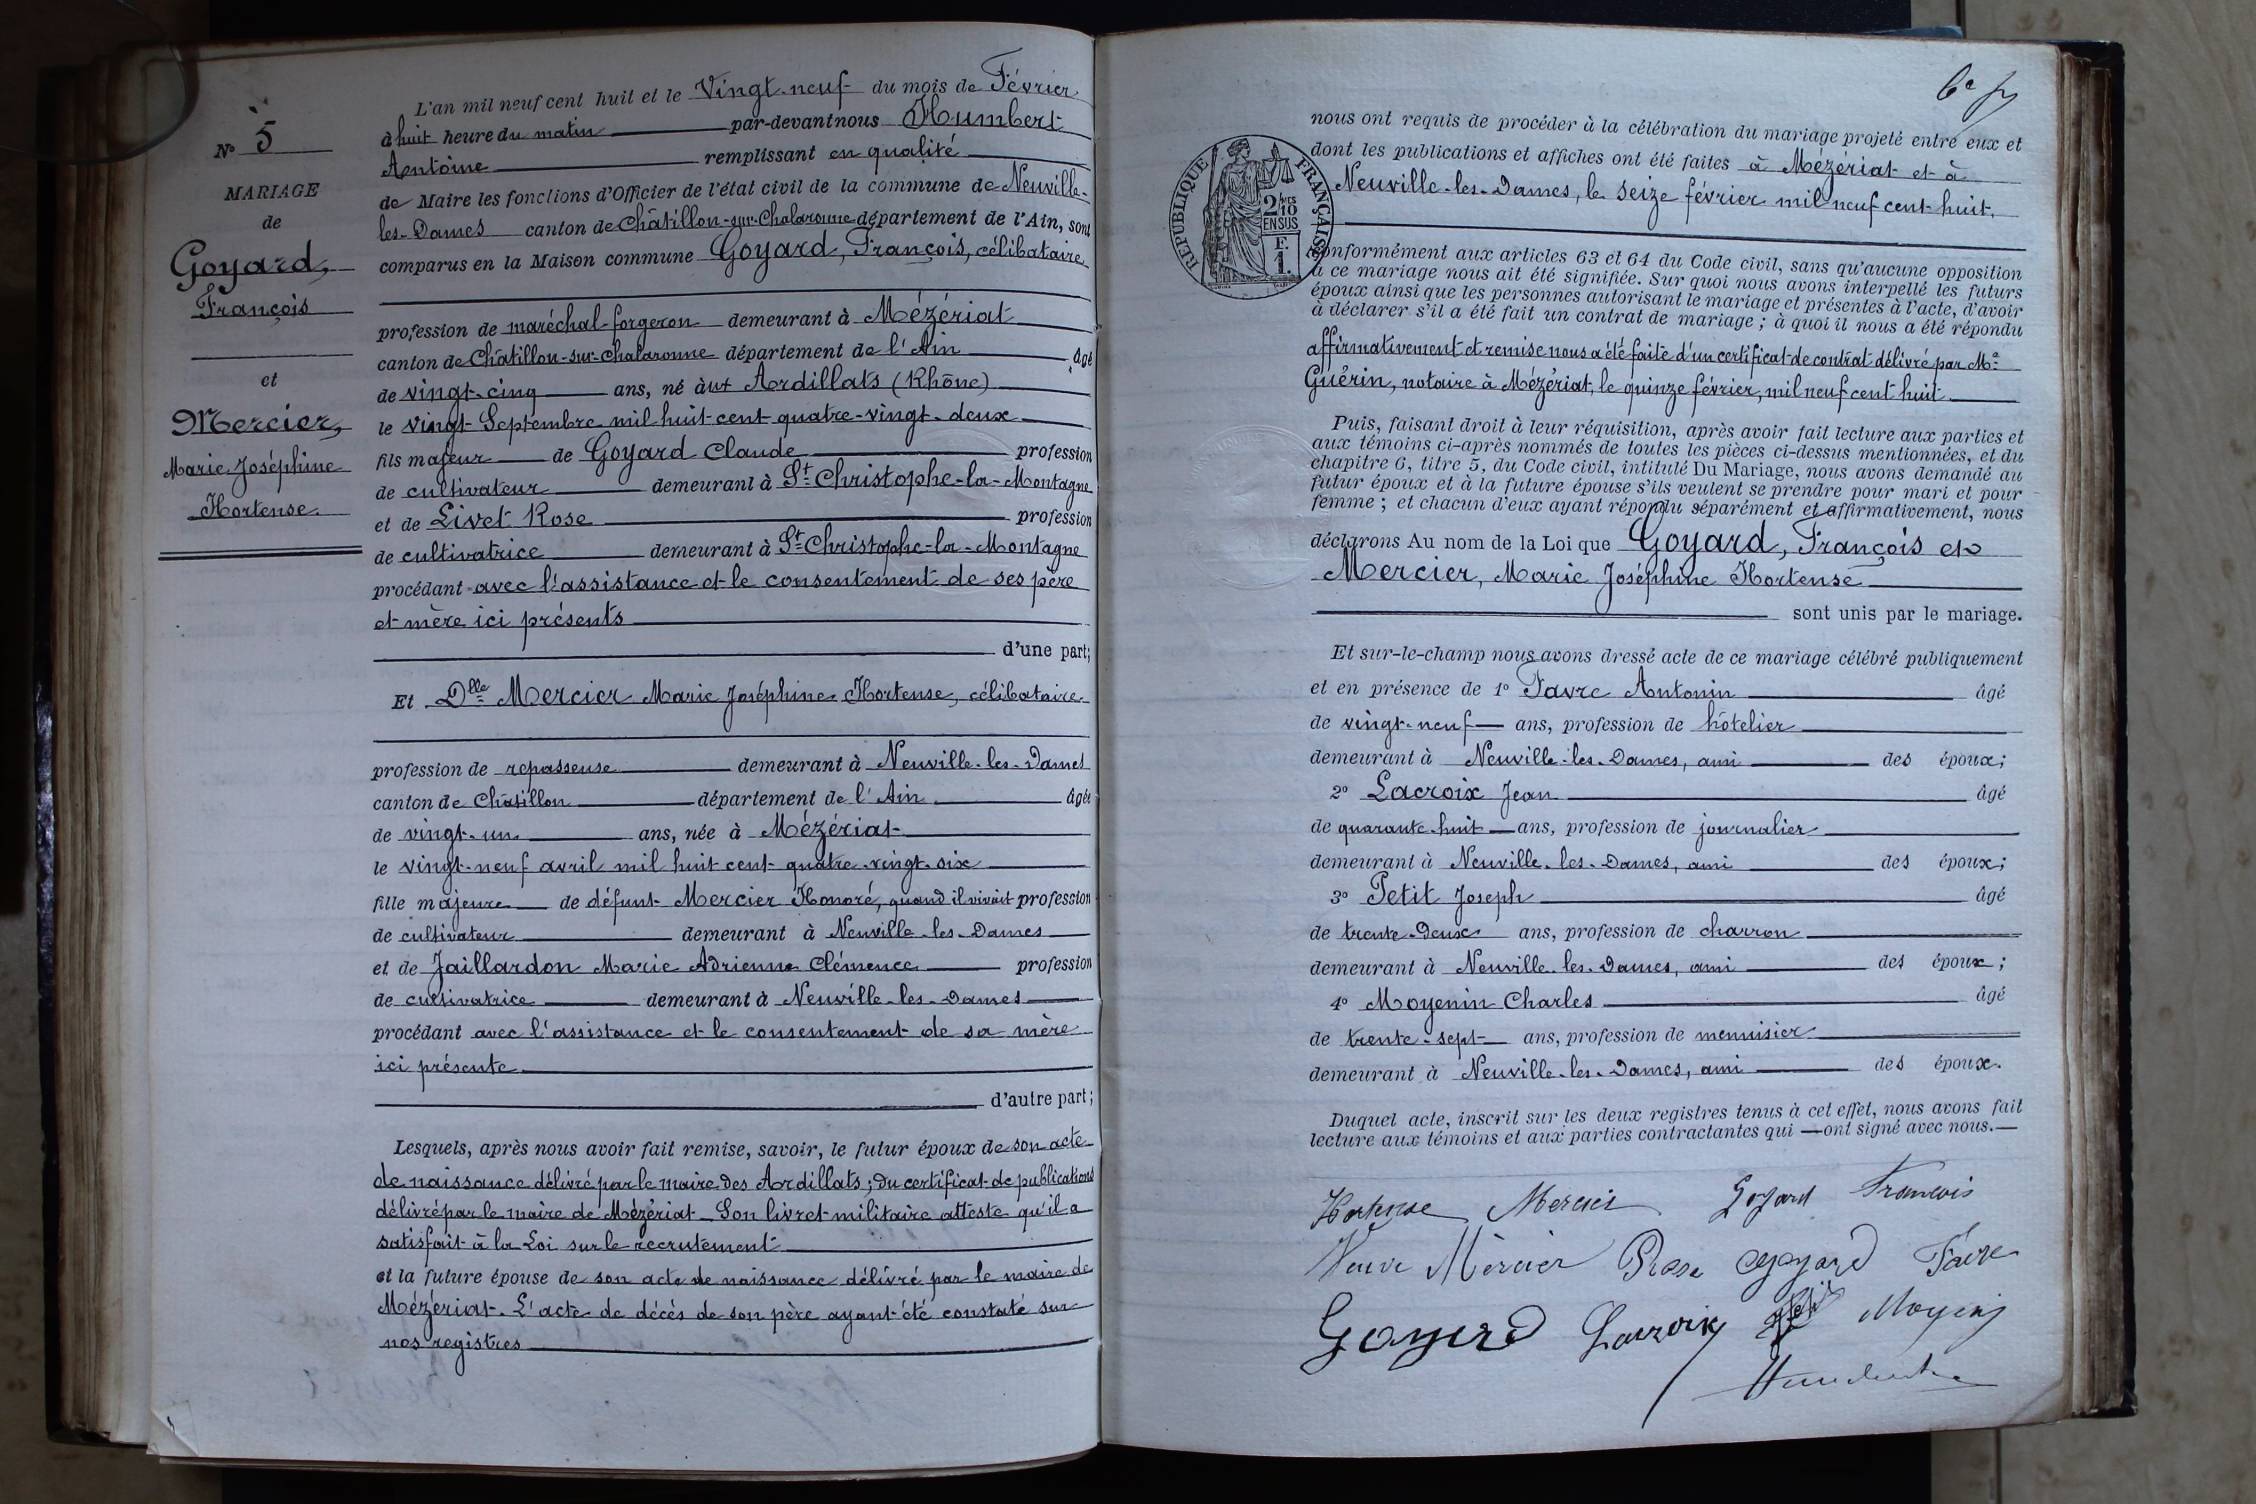 N° 5
MARIAGE
de
Goyard,
François
et
Mercier,
Marie Joséphine
Hortense.
L'an mil neuf cent huit et le Vingt-neuf du mois de Février
à huit heure du matin par-devant nous Humbert
Antoine remplissant en qualité
de Maire les fonctions d'Officier de l'état civil de la commune de Neuville-
les-Dames canton de Châtillon-sur-Chalaronne département de l'Ain, sont
comparus en la Maison commune Goyard, François, célibataire
profession de maréchal-forgeron demeurant à Mézériat
canton de Châtillon-sur-Chalaronne département de l'Ain âgé
de vingt-cinq ans, né aux Ardillats (Rhône)
le vingt Septembre mil huit cent quatre-vingt-deux
fils majeur de Goyard Claude profession
de cultivateur demeurant à St Christophe-la-Montagne
et de Livet Rose profession
de cultivatrice demeurant à St Christophe-la-Montagne
procédant avec l'assistance et le consentement de ses père
et mère ici présents
d'une part;
Et Dlle Mercier Marie Joséphine Hortense, célibataire
profession de repasseuse demeurant à Neuville-les-Dames
canton de Chatillon département de l'Ain âgée
de vingt-un ans, née à Mézériat
le vingt-neuf avril mil huit cent quatre-vingt-six
fille majeure de défunt Mercier Honoré, quand il vivait profession
de cultivateur demeurant à Neuville-les-Dames
et de Jaillardon Marie Adrienne Clémence profession
de cultivatrice demeurant à Neuville-les-Dames
procédant avec l'assistance et le consentement de sa mère
ici présente
d'autre part;
Lesquels, après nous avoir fait remise, savoir, le futur époux de son acte
de naissance délivré par le maire des Ardillats; du certificat de publications
délivré par le maire de Mézériat. Son livret militaire atteste qu'il a
satisfait à la Loi sur le recrutement
et la future épouse de son acte de naissance délivré par le maire de
Mézériat. L'acte de décès de son père ayant été constaté sur
nos registres
6e
nous ont requis de procéder à la célébration du mariage projeté entre eux et
dont les publications et affiches ont été faites à Mézériat et à
Neuville-les-Dames, le seize février mil neuf cent huit.
RÉPUBLIQUE FRANÇAISE
2/10 EN SUS
F. 1.
conformément aux articles 63 et 64 du Code civil, sans qu'aucune opposition
à ce mariage nous ait été signifiée. Sur quoi nous avons interpellé les futurs
époux ainsi que les personnes autorisant le mariage et présentes à l'acte, d'avoir
à déclarer s'il a été fait un contrat de mariage; à quoi il nous a été répondu
affirmativement et remise nous a été faite d'un certificat de contrat délivré par Me
Guérin, notaire à Mézériat, le quinze février, mil neuf cent huit
Puis, faisant droit à leur réquisition, après avoir fait lecture aux parties et
aux témoins ci-après nommés de toutes les pièces ci-dessus mentionnées, et du
chapitre 6, titre 5, du Code civil, intitulé Du Mariage, nous avons demandé au
futur époux et à la future épouse s'ils veulent se prendre pour mari et pour
femme; et chacun d'eux ayant répondu séparément et affirmativement, nous
déclarons Au nom de la Loi que Goyard, François et
Mercier, Marie Joséphine Hortense
sont unis par le mariage.
Et sur-le-champ nous avons dressé acte de ce mariage célébré publiquement
et en présence de 1° Favre Antonin âgé
de vingt-neuf ans, profession de hôtelier
demeurant à Neuville-les-Dames, ami des époux;
2° Lacroix Jean âgé
de quarante-huit ans, profession de journalier
demeurant à Neuville-les-Dames, ami des époux;
3° Petit Joseph âgé
de trente-deux ans, profession de charron
demeurant à Neuville-les-Dames, ami des époux;
4° Moyenin Charles âgé
de trente-sept ans, profession de menuisier
demeurant à Neuville-les-Dames, ami des époux.
Duquel acte, inscrit sur les deux registres tenus à cet effet, nous avons fait
lecture aux témoins et aux parties contractantes qui ont signé avec nous.
Hortense Mercier Goyard Francois
Veuve Mercier Rose Goyard Favre
Goyard Lacroix Moyenin